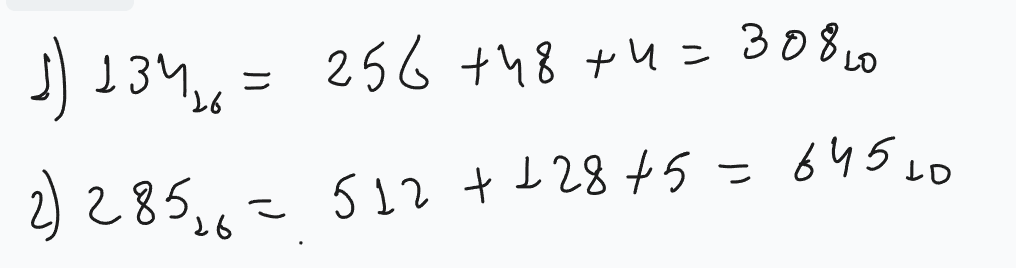 1) 134₁₆ = 256 + 48 + 4 = 308₁₀
2) 285₁₆ = 512 + 128 + 5 = 645₁₀